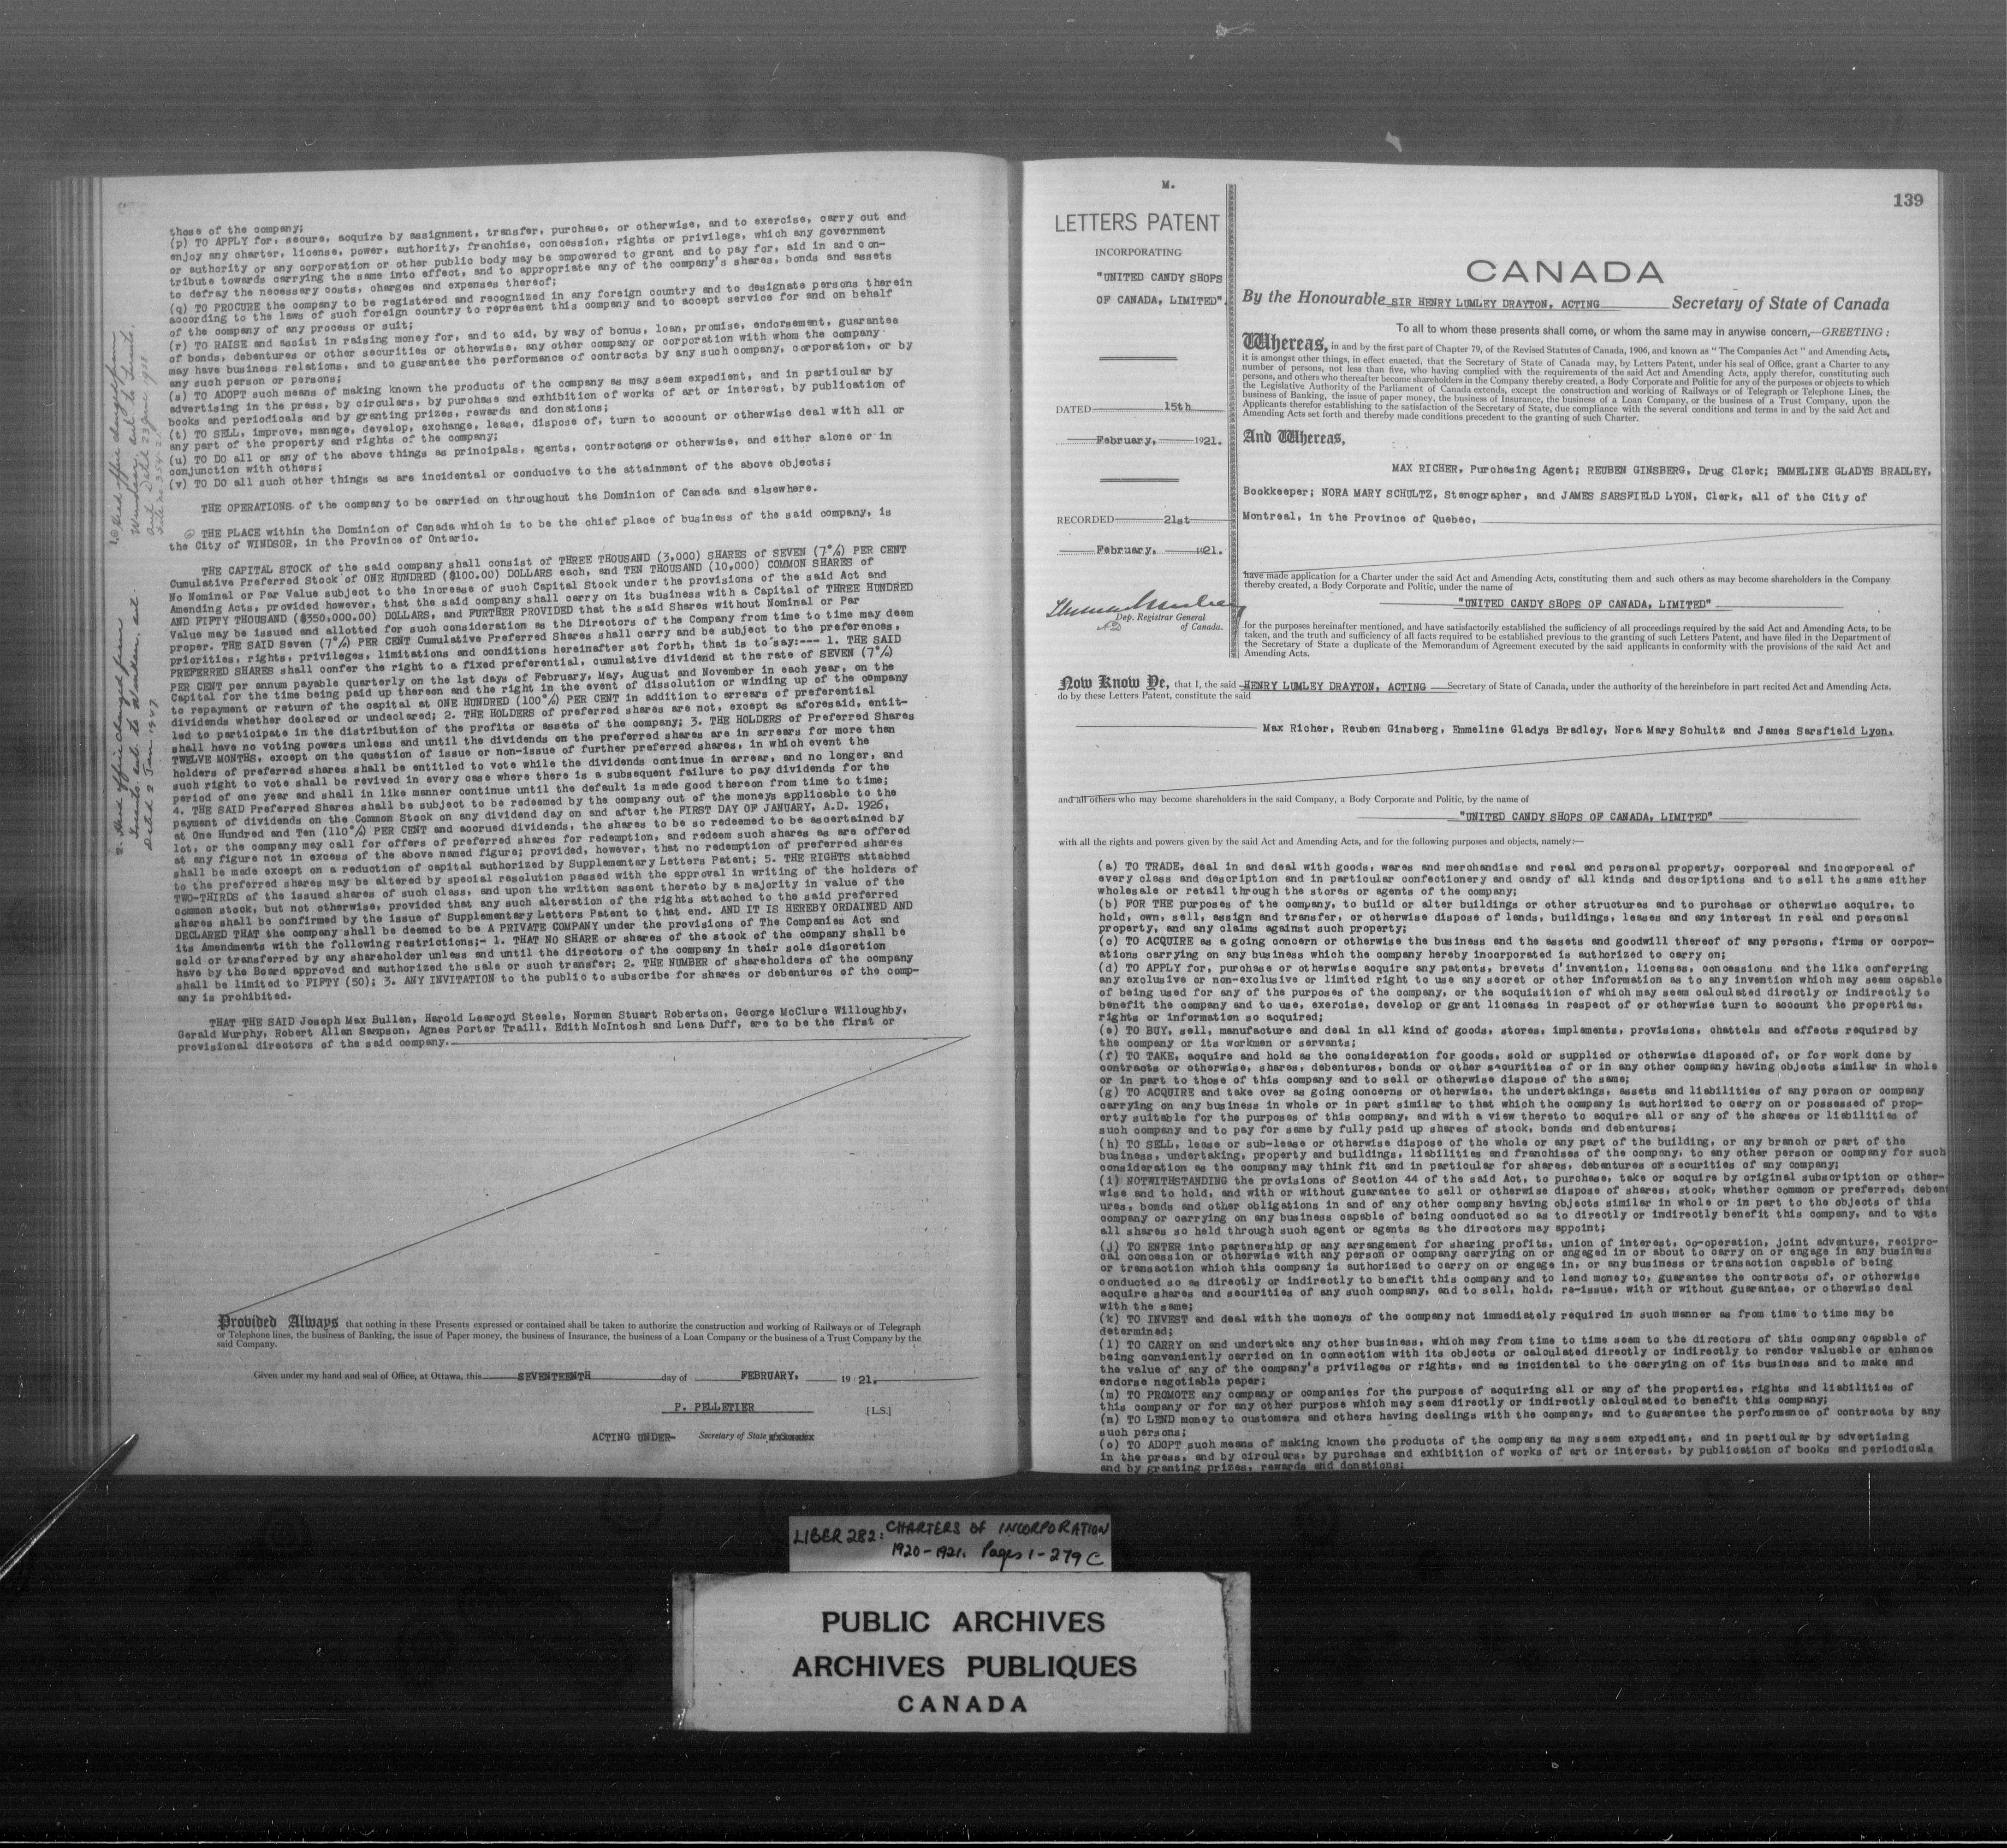 those of the company;
(p) TO APPLY for, secure, acquire by assignment, transfer, purchase, or otherwise, and to exercise, carry out and
enjoy any charter, license, power, authority, franchise, concession, rights or privilege, which any government
or authority or any corporation or other public body may be empowered to grant and to pay for, aid in and con-
tribute towards carrying the same into effect, and to appropriate any of the company's shares, bonds and assets
to defray the necessary costs, charges and expenses thereof;
(q) TO PROCURE the company to be registered and recognized in any foreign country and to designate persons therein
according to the laws of such foreign country to represent this company and to accept service for and on behalf
of the company of any process or suit;
(r) TO RAISE and assist in raising money for, and to aid, by way of bonus, loan, promise, endorsement, guarantee
of bonds, debentures or other securities or otherwise, any other company or corporation with whom the company
may have business relations, and to guarantee the performance of contracts by any such company, corporation, or by
any such person or persons;
(s) TO ADOPT such means of making known the products of the company as may seem expedient, and in particular by
advertising in the press, by circulars, by purchase and exhibition of works of art or interest, by publication of
books and periodicals and by granting prizes, rewards and donations;
(t) TO SELL, improve, manage, develop, exchange, lease, dispose of, turn to account or otherwise deal with all or
any part of the property and rights of the company;
(u) TO DO all or any of the above things as principals, agents, contractors or otherwise, and either alone or in
conjunction with others;
(v) TO DO all such other things as are incidental or conducive to the attainment of the above objects;
THE OPERATIONS of the company to be carried on throughout the Dominion of Canada and elsewhere.
THE PLACE within the Dominion of Canada which is to be the chief place of business of the said company, is
the City of WINDSOR, in the Province of Ontario.
THE CAPITAL STOCK of the said company shall consist of THREE THOUSAND (3,000) SHARES of SEVEN (7%) PER CENT
Cumulative Preferred Stock of ONE HUNDRED ($100.00) DOLLARS each, and TEN THOUSAND (10,000) COMMON SHARES of
No Nominal or Par Value subject to the increase of such Capital Stock under the provisions of the said Act and
Amending Acts, provided however, that the said company shall carry on its business with a Capital of THREE HUNDRED
AND FIFTY THOUSAND ($350,000.00) DOLLARS, and FURTHER PROVIDED that the said Shares without Nominal or Par
Value may be issued and allotted for such consideration as the Directors of the Company from time to time may deem
proper. THE SAID Seven (7%) PER CENT Cumulative Preferred Shares shall carry and be subject to the preferences,
priorities, rights, privileges, limitations and conditions hereinafter set forth, that is to say:--- 1. THE SAID
PREFERRED SHARES shall confer the right to a fixed preferential, cumulative dividend at the rate of SEVEN (7%)
PER CENT per annum payable quarterly on the 1st days of February, May, August and November in each year, on the
Capital for the time being paid up thereon and the right in the event of dissolution or winding up of the company
to repayment or return of the capital at ONE HUNDRED (100%) PER CENT in addition to arrears of preferential
dividends whether declared or undeclared; 2. THE HOLDERS of preferred shares are not, except as aforesaid, entit-
led to participate in the distribution of the profits or assets of the company; 3. THE HOLDERS of Preferred Shares
shall have no voting powers unless and until the dividends on the preferred shares are in arrears for more than
TWELVE MONTHS, except on the question of issue or non-issue of further preferred shares, in which event the
holders of preferred shares shall be entitled to vote while the dividends continue in arrear, and no longer, and
such right to vote shall be revived in every case where there is a subsequent failure to pay dividends for the
period of one year and shall in like manner continue until the default is made good thereon from time to time;
4. THE SAID Preferred Shares shall be subject to be redeemed by the company out of the moneys applicable to the
payment of dividends on the Common Stock on any dividend day on and after the FIRST DAY OF JANUARY, A.D. 1926,
at One Hundred and Ten (110%) PER CENT and accrued dividends, the shares to be so redeemed to be ascertained by
lot, or the company may call for offers of preferred shares for redemption, and redeem such shares as are offered
at any figure not in excess of the above named figure; provided, however, that no redemption of preferred shares
shall be made except on a reduction of capital authorized by Supplementary Letters Patent; 5. THE RIGHTS attached
to the preferred shares may be altered by special resolution passed with the approval in writing of the holders of
TWO-THIRDS of the issued shares of such class, and upon the written assent thereto by a majority in value of the
common stock, but not otherwise, provided that any such alteration of the rights attached to the said preferred
shares shall be confirmed by the issue of Supplementary Letters Patent to that end. AND IT IS HEREBY ORDAINED AND
DECLARED THAT the company shall be deemed to be A PRIVATE COMPANY under the provisions of The Companies Act and
its Amendments with the following restrictions;- 1. THAT NO SHARE or shares of the stock of the company shall be
sold or transferred by any shareholder unless and until the directors of the company in their sole discretion
have by the Board approved and authorized the sale or such transfer; 2. THE NUMBER of shareholders of the company
shall be limited to FIFTY (50); 3. ANY INVITATION to the public to subscribe for shares or debentures of the comp-
any is prohibited.
THAT THE SAID Joseph Max Bullen, Harold Learoyd Steele, Norman Stuart Robertson, George McClure Willoughby,
Gerald Murphy, Robert Allan Sampson, Agnes Porter Traill, Edith McIntosh and Lena Duff, are to be the first or
provisional directors of the said company.
Provided Always that nothing in these Presents expressed or contained shall be taken to authorize the construction and working of Railways or of Telegraph
or Telephone lines, the business of Banking, the issue of Paper money, the business of Insurance, the business of a Loan Company or the business of a Trust Company by the
said Company.
Given under my hand and seal of Office, at Ottawa, this SEVENTEENTH day of FEBRUARY, 1921.
P. PELLETIER [L.S.]
ACTING UNDER- Secretary of State
1. Head office changed from
Windsor, Ont. to Toronto,
Ont. Dated 23 June 1938
2. Head office changed from
Toronto, Ont. to Windsor, Ont.
Dated 3 Jan 1947
M.
LETTERS PATENT
INCORPORATING
"UNITED CANDY SHOPS
OF CANADA, LIMITED".
DATED 15th
February, 1921.
RECORDED 21st
February, 1921.
Dep. Registrar General
of Canada.
139
CANADA
By the Honourable SIR HENRY LUMLEY DRAYTON, ACTING Secretary of State of Canada
To all to whom these presents shall come, or whom the same may in anywise concern,—GREETING :
Whereas, in and by the first part of Chapter 79, of the Revised Statutes of Canada, 1906, and known as "The Companies Act" and Amending Acts,
it is amongst other things, in effect enacted, that the Secretary of State of Canada may, by Letters Patent, under his seal of Office, grant a Charter to any
number of persons, not less than five, who having complied with the requirements of the said Act and Amending Acts, apply therefor, constituting such
persons, and others who thereafter become shareholders in the Company thereby created, a Body Corporate and Politic for any of the purposes or objects to which
the Legislative Authority of the Parliament of Canada extends, except the construction and working of Railways or of Telegraph or Telephone Lines, the
business of Banking, the issue of paper money, the business of Insurance, the business of a Loan Company, or the business of a Trust Company, upon the
Applicants therefor establishing to the satisfaction of the Secretary of State, due compliance with the several conditions and terms in and by the said Act and
Amending Acts set forth and thereby made conditions precedent to the granting of such Charter.
And Whereas,
MAX RICHER, Purchasing Agent; REUBEN GINSBERG, Drug Clerk; EMMELINE GLADYS BRADLEY,
Bookkeeper; NORA MARY SCHULTZ, Stenographer, and JAMES SARSFIELD LYON, Clerk, all of the City of
Montreal, in the Province of Quebec,
have made application for a Charter under the said Act and Amending Acts, constituting them and such others as may become shareholders in the Company
thereby created, a Body Corporate and Politic, under the name of
"UNITED CANDY SHOPS OF CANADA, LIMITED"
for the purposes hereinafter mentioned, and have satisfactorily established the sufficiency of all proceedings required by the said Act and Amending Acts, to be
taken, and the truth and sufficiency of all facts required to be established previous to the granting of such Letters Patent, and have filed in the Department of
the Secretary of State a duplicate of the Memorandum of Agreement executed by the said applicants in conformity with the provisions of the said Act and
Amending Acts.
Now Know Ye, that I, the said HENRY LUMLEY DRAYTON, ACTING Secretary of State of Canada, under the authority of the hereinbefore in part recited Act and Amending Acts,
do by these Letters Patent, constitute the said
Max Richer, Reuben Ginsberg, Emmeline Gladys Bradley, Nora Mary Schultz and James Sarsfield Lyon,
and all others who may become shareholders in the said Company, a Body Corporate and Politic, by the name of
"UNITED CANDY SHOPS OF CANADA, LIMITED"
with all the rights and powers given by the said Act and Amending Acts, and for the following purposes and objects, namely:—
(a) TO TRADE, deal in and deal with goods, wares and merchandise and real and personal property, corporeal and incorporeal of
every class and description and in particular confectionery and candy of all kinds and descriptions and to sell the same either
wholesale or retail through the stores or agents of the company;
(b) FOR THE purposes of the company, to build or alter buildings or other structures and to purchase or otherwise acquire, to
hold, own, sell, assign and transfer, or otherwise dispose of lands, buildings, leases and any interest in real and personal
property, and any claims against such property;
(c) TO ACQUIRE as a going concern or otherwise the business and the assets and goodwill thereof of any persons, firms or corpor-
ations carrying on any business which the company hereby incorporated is authorized to carry on;
(d) TO APPLY for, purchase or otherwise acquire any patents, brevets d'invention, licenses, concessions and the like conferring
any exclusive or non-exclusive or limited right to use any secret or other information as to any invention which may seem capable
of being used for any of the purposes of the company, or the acquisition of which may seem calculated directly or indirectly to
benefit the company and to use, exercise, develop or grant licenses in respect of or otherwise turn to account the properties,
rights or information so acquired;
(e) TO BUY, sell, manufacture and deal in all kind of goods, stores, implements, provisions, chattels and effects required by
the company or its workmen or servants;
(f) TO TAKE, acquire and hold as the consideration for goods, sold or supplied or otherwise disposed of, or for work done by
contracts or otherwise, shares, debentures, bonds or other securities of or in any other company having objects similar in whole
or in part to those of this company and to sell or otherwise dispose of the same;
(g) TO ACQUIRE and take over as going concerns or otherwise, the undertakings, assets and liabilities of any person or company
carrying on any business in whole or in part similar to that which the company is authorized to carry on or possessed of prop-
erty suitable for the purposes of this company, and with a view thereto to acquire all or any of the shares or liabilities of
such company and to pay for same by fully paid up shares of stock, bonds and debentures;
(h) TO SELL, lease or sub-lease or otherwise dispose of the whole or any part of the building, or any branch or part of the
business, undertaking, property and buildings, liabilities and franchises of the company, to any other person or company for such
consideration as the company may think fit and in particular for shares, debentures or securities of any company;
(i) NOTWITHSTANDING the provisions of Section 44 of the said Act, to purchase, take or acquire by original subscription or other-
wise and to hold, and with or without guarantee to sell or otherwise dispose of shares, stock, whether common or preferred, deben
ures, bonds and other obligations in and of any other company having objects similar in whole or in part to the objects of this
company or carrying on any business capable of being conducted so as to directly or indirectly benefit this company, and to vote
all shares so held through such agent or agents as the directors may appoint;
(j) TO ENTER into partnership or any arrangement for sharing profits, union of interest, co-operation, joint adventure, recipro-
cal concession or otherwise with any person or company carrying on or engaged in or about to carry on or engage in any business
or transaction which this company is authorized to carry on or engage in, or any business or transaction capable of being
conducted so as directly or indirectly to benefit this company and to lend money to, guarantee the contracts of, or otherwise
acquire shares and securities of any such company, and to sell, hold, re-issue, with or without guarantee, or otherwise deal
with the same;
(k) TO INVEST and deal with the moneys of the company not immediately required in such manner as from time to time may be
determined;
(l) TO CARRY on and undertake any other business, which may from time to time seem to the directors of this company capable of
being conveniently carried on in connection with its objects or calculated directly or indirectly to render valuable or enhance
the value of any of the company's privileges or rights, and as incidental to the carrying on of its business and to make and
endorse negotiable paper;
(m) TO PROMOTE any company or companies for the purpose of acquiring all or any of the properties, rights and liabilities of
this company or for any other purpose which may seem directly or indirectly calculated to benefit this company;
(n) TO LEND money to customers and others having dealings with the company, and to guarantee the performance of contracts by any
such persons;
(o) TO ADOPT such means of making known the products of the company as may seem expedient, and in particular by advertising
in the press, and by circulars, by purchase and exhibition of works of art or interest, by publication of books and periodicals
and by granting prizes, rewards and donations;
LIBER 282: CHARTERS OF INCORPORATION
1920-1921. Pages 1-279 C
PUBLIC ARCHIVES
ARCHIVES PUBLIQUES
CANADA